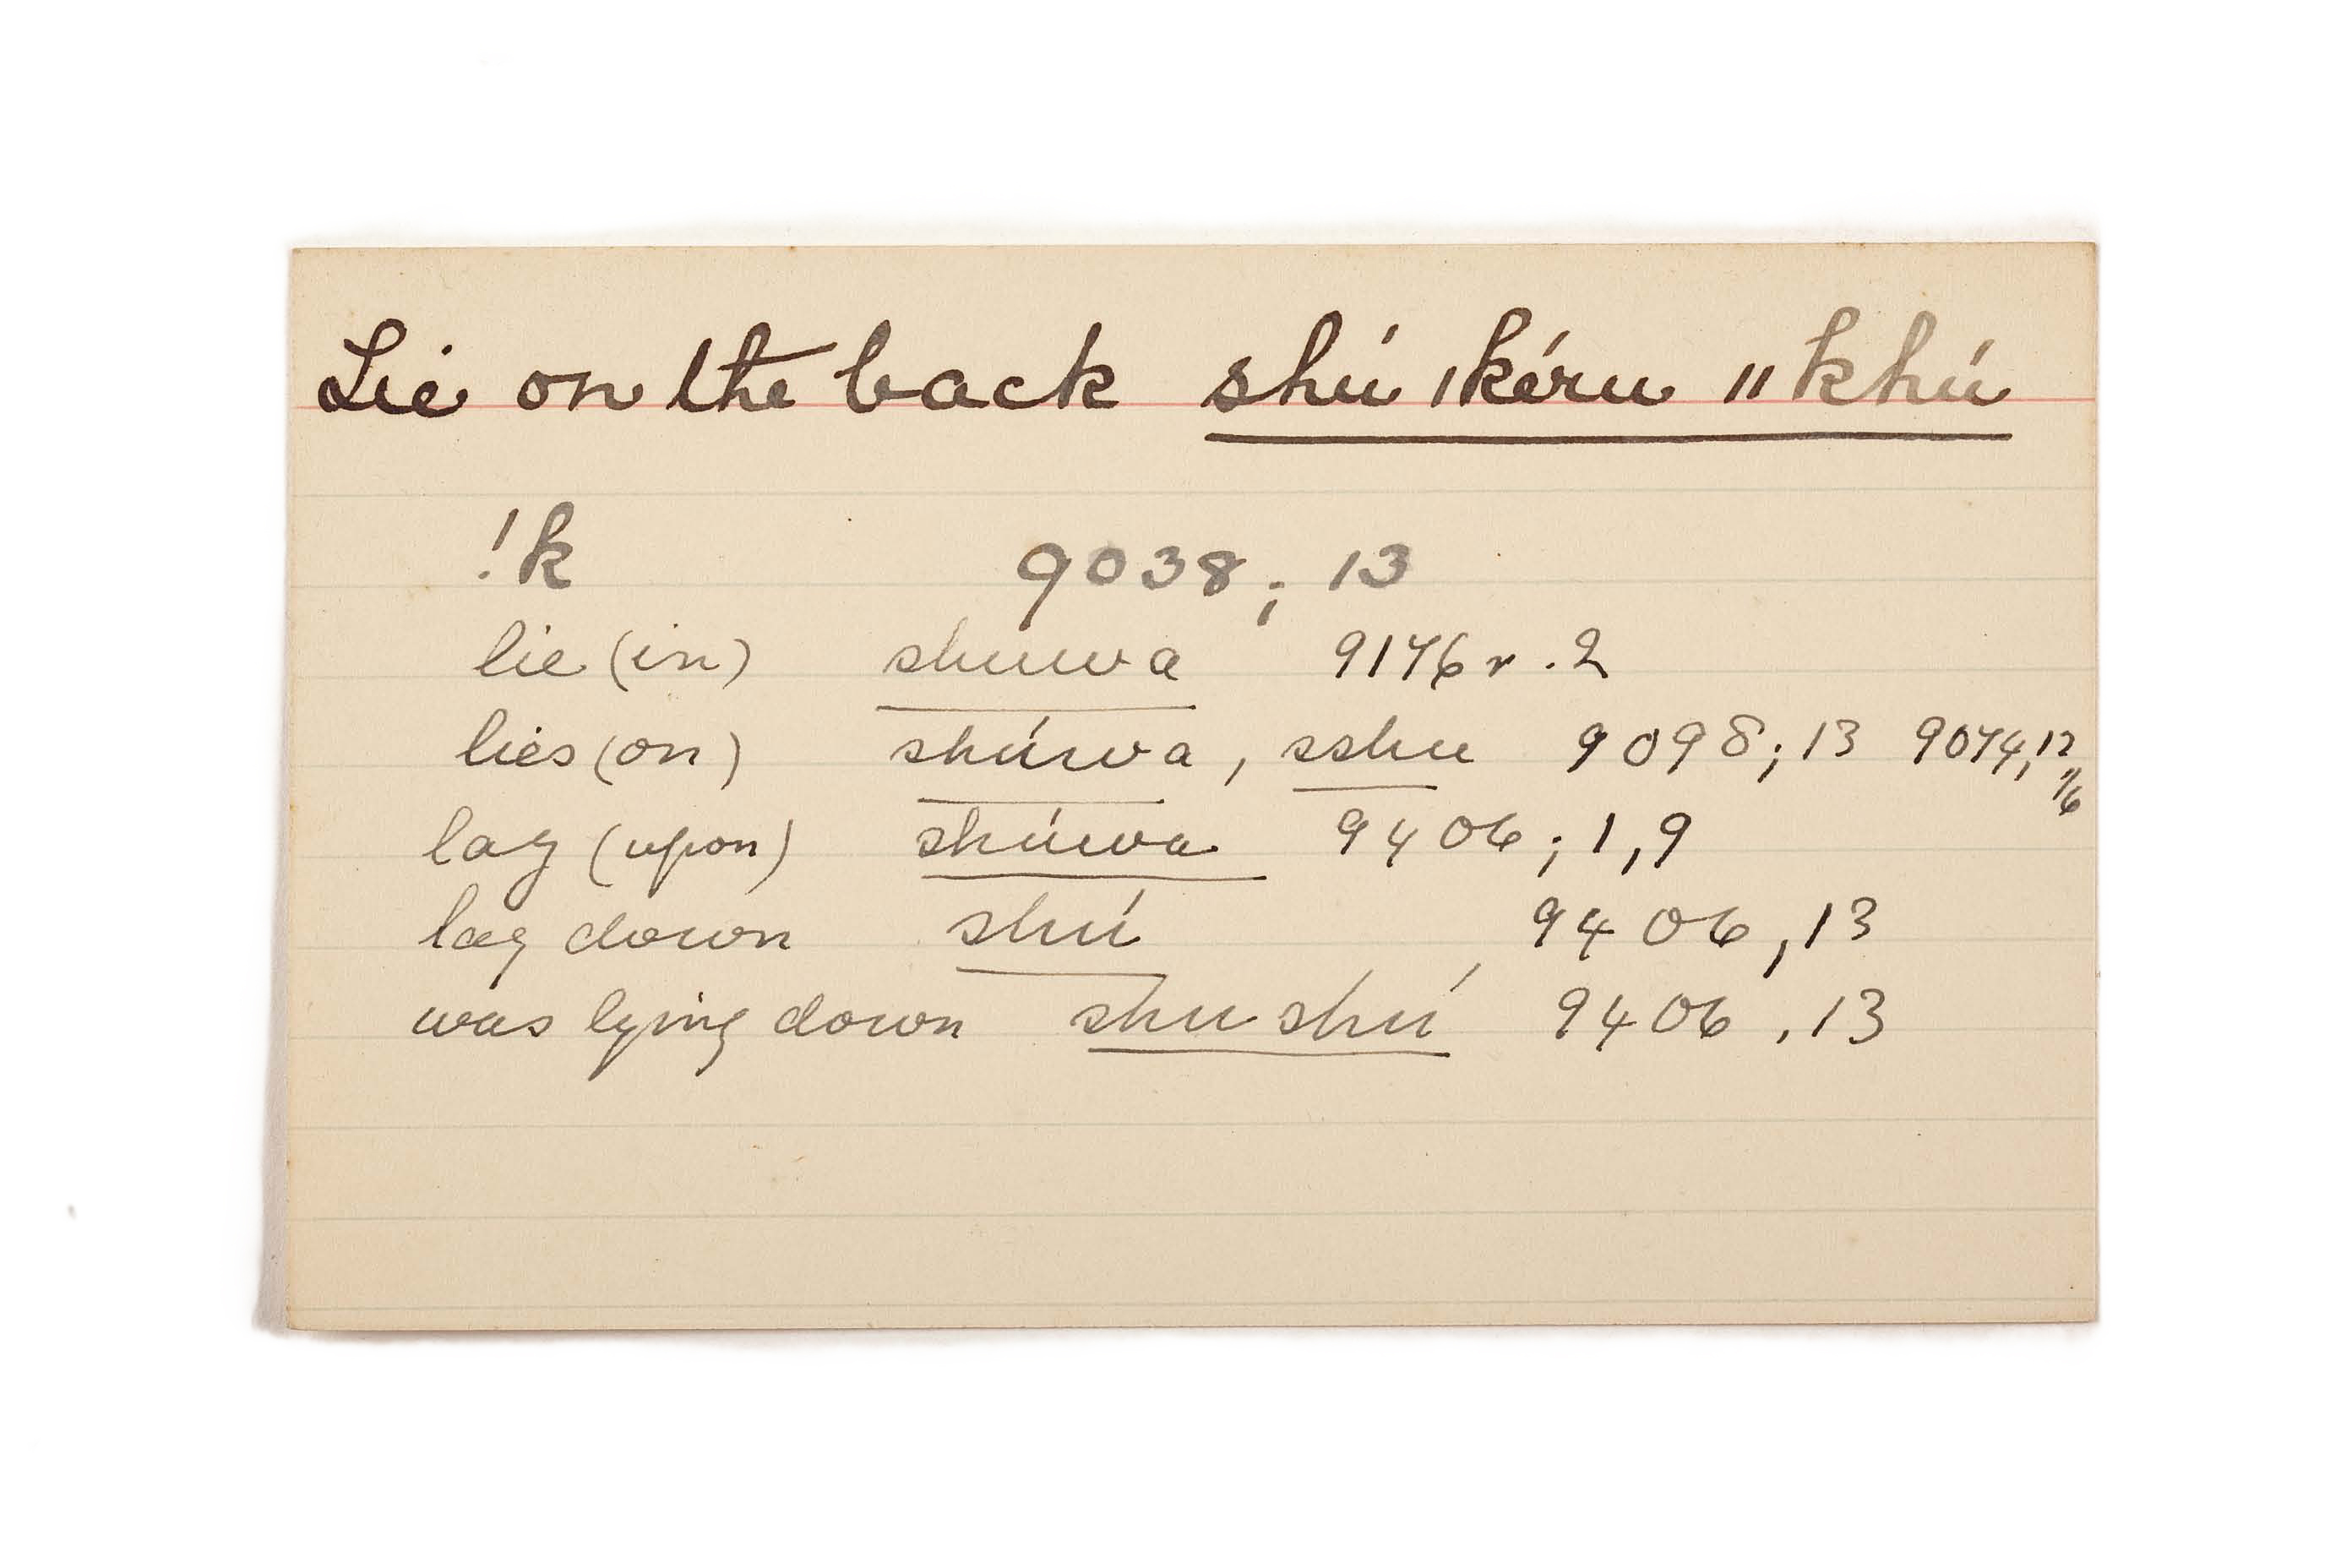 Lie on the back shú |kéru ||khú
!k 9038; 13
lie (in) shuwa 9176 r. 2
lies (on) shúwa, sshu 9098; 13 9074, 12
lay (upon) shúwa 9406; 1, 9
lay down shú 9406, 13
was lying down shu shú 9406, 13